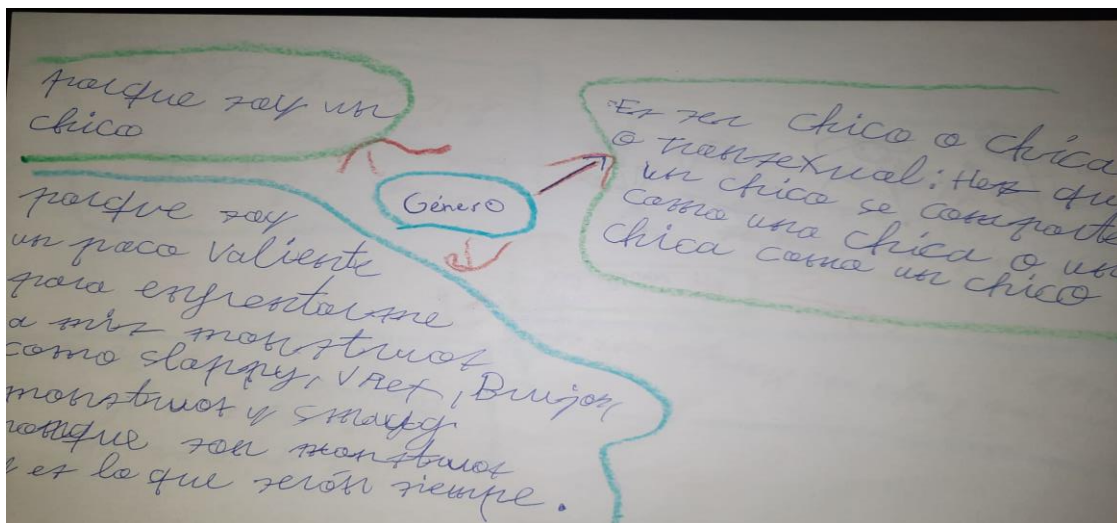 porque soy un
chico
Género
Es ser chico o chica
o transexual: que
un chico se comporte
como una chica o un
chica como un chico
porque soy
un poco valiente
para enfrentarme
a mis monstruos
como slappy, , Brujos,
monstruos y smaug
porque son monstruos
y es lo que serón siempre.